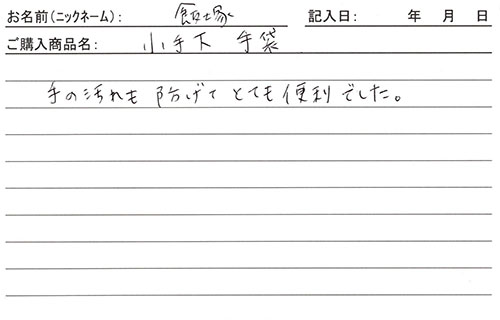 お名前(ニックネーム): 飯塚 記入日: 年 月 日
ご購入商品名: 小手下 手袋
手の汚れも 防げて とても便利でした。